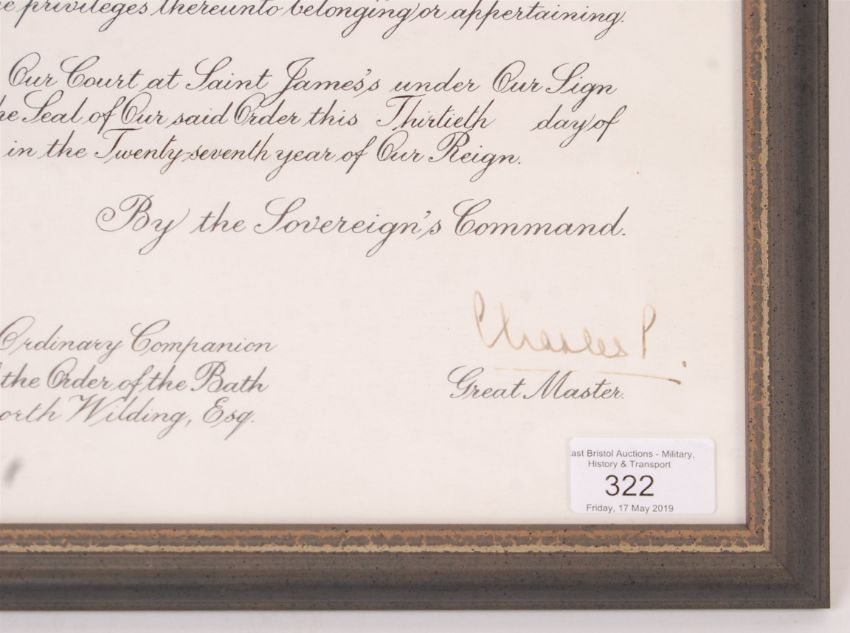 privileges thereunto belonging or appertaining.
Our Court at Saint James's under Our Sign
the Seal of Our said Order this Thirtieth day of
in the Twenty-seventh year of Our Reign.
By the Sovereign's Command.
Charles P.
Great Master.
Ordinary Companion
the Order of the Bath
orth Wilding, Esq.
ast Bristol Auctions - Military,
History & Transport
322
Friday, 17 May 2019